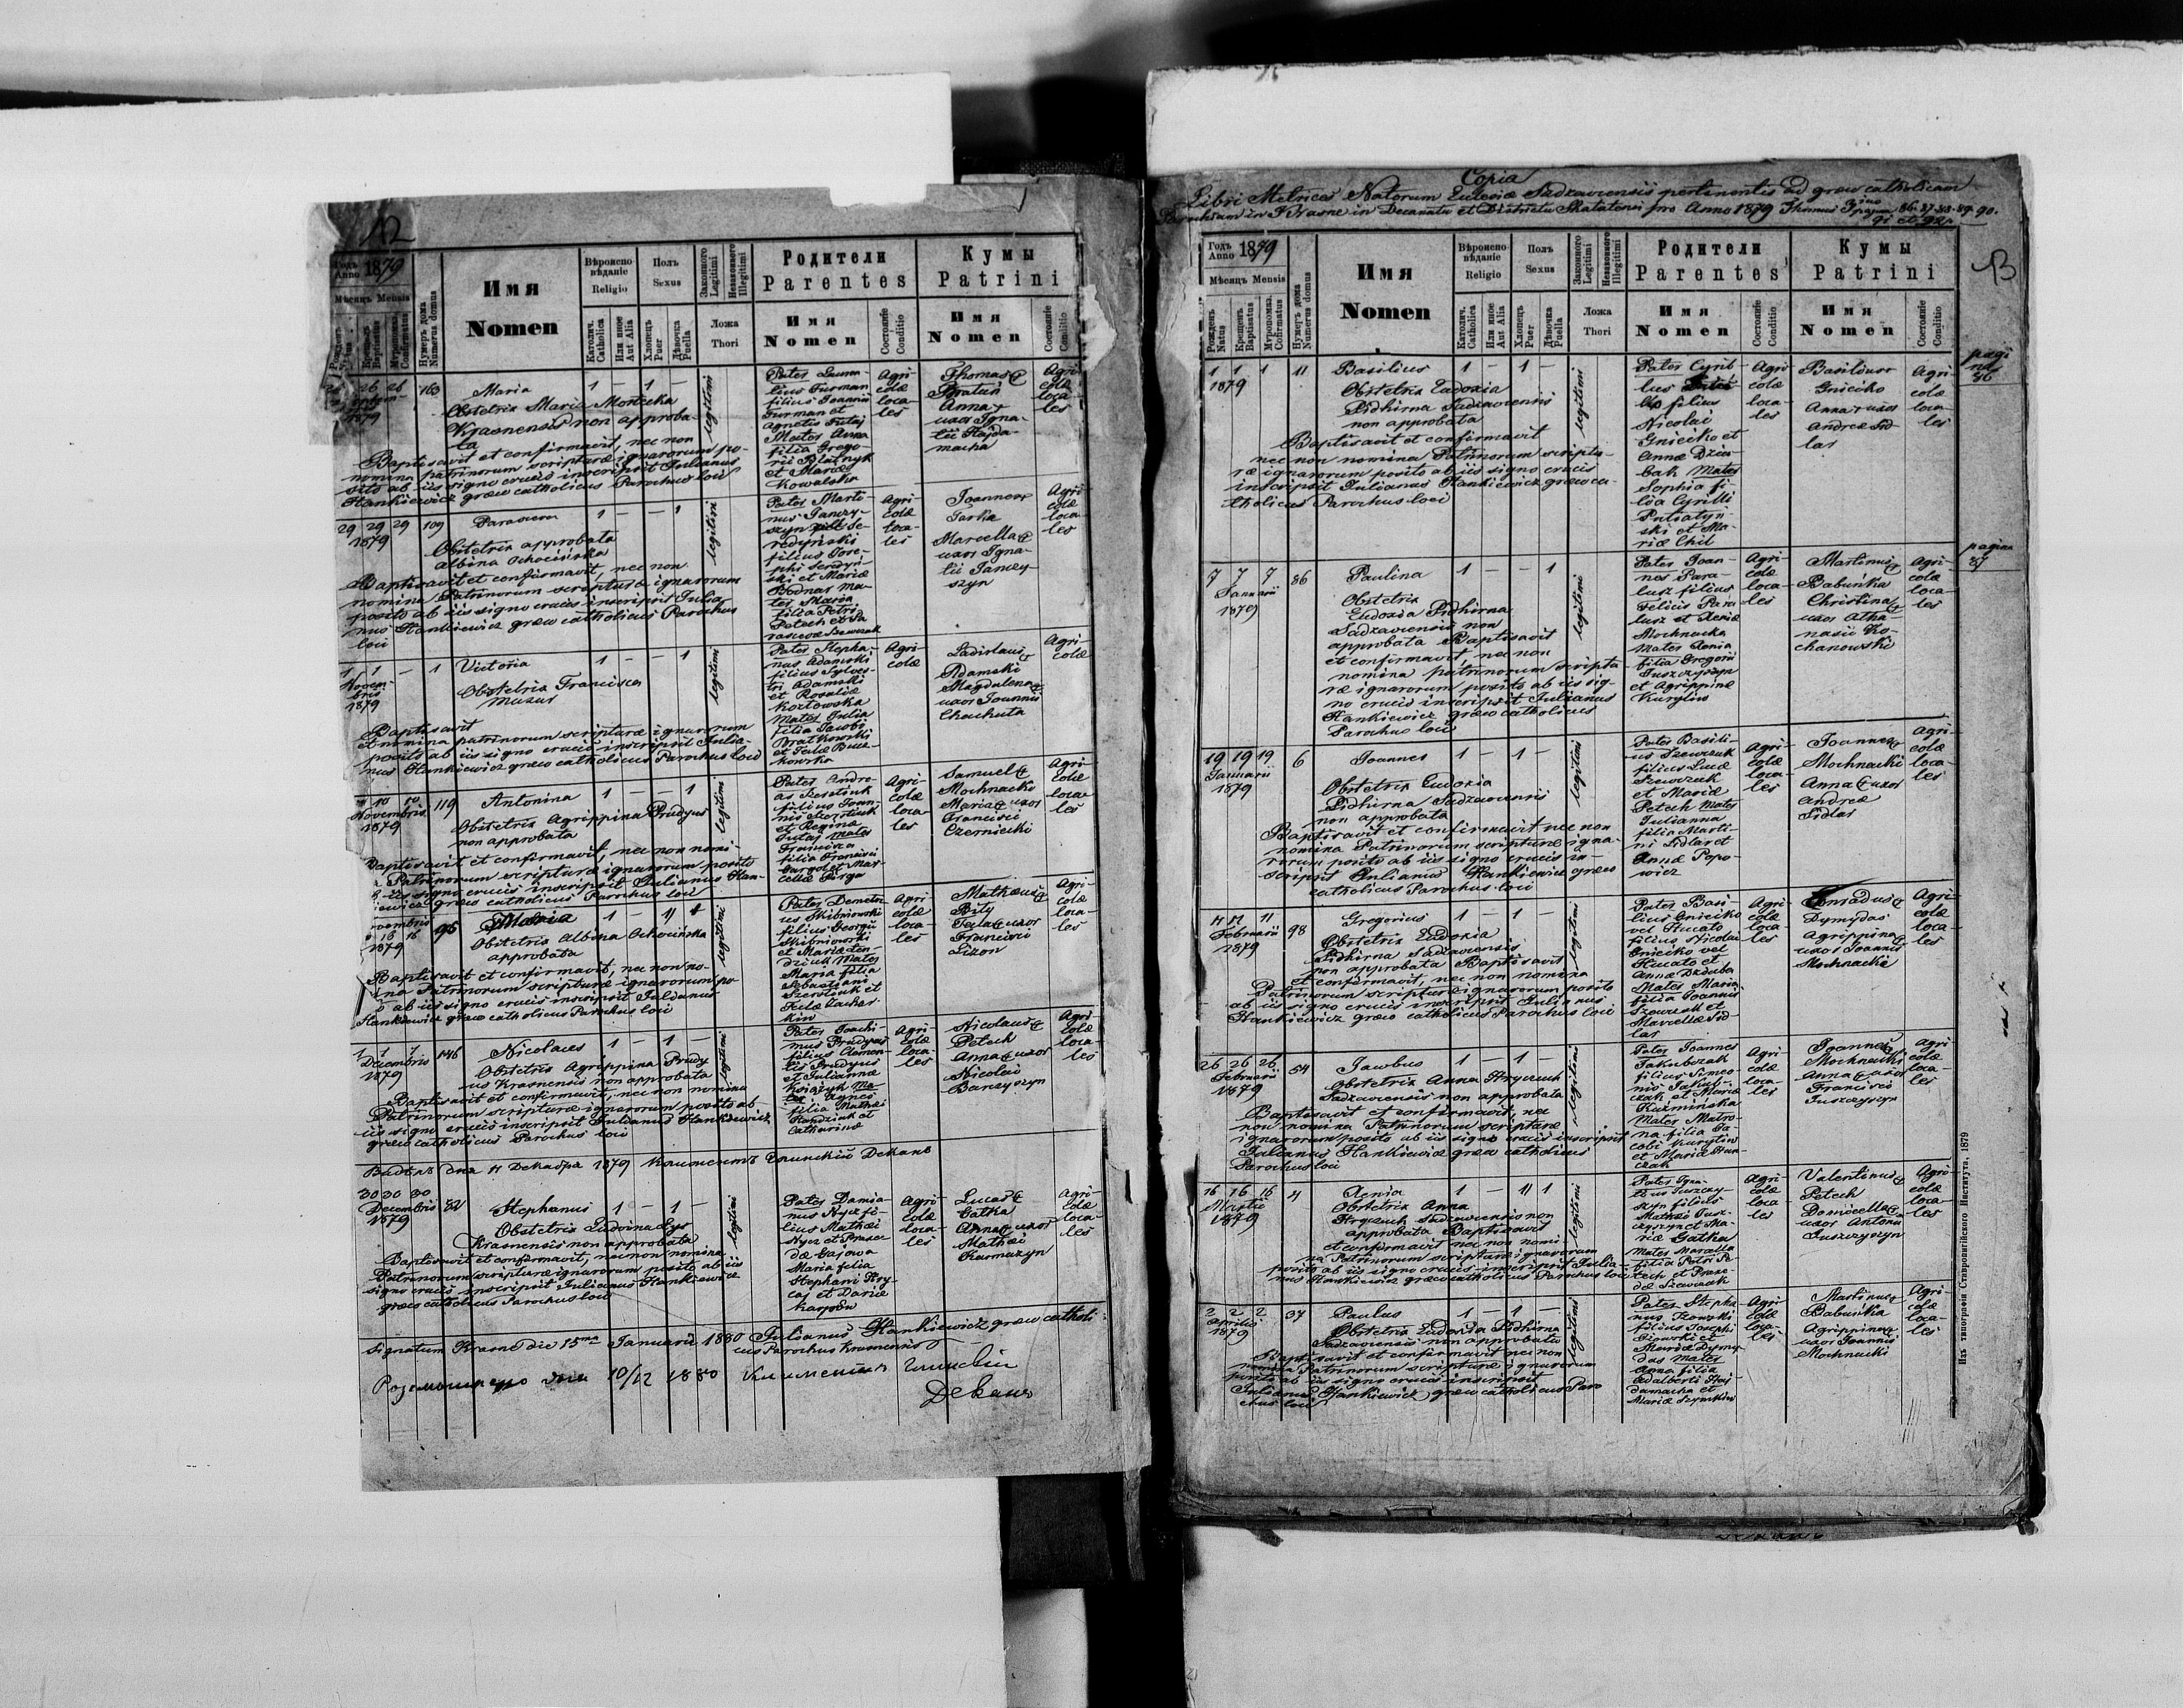 12
Годъ Anno 1879
Мѣсяцъ Mensis
Рожденъ Natus
Крещенъ Baptisatus
Муропомаз. Cofirmatus
Нумеръ дома Numerus domus
Имя
Nomen
Вѣроиспо-
вѣданіе
Religio
Католич. Catholica
Или иное Aut Alia
Полъ
Sexus
Хлопецъ Puer
Дѣвочка Puella
Законного Legitimi
Незаконного Illegitimi
Ложа
Thori
Родители
Parentes
Имя
Nomen
Состояніе Conditio
Кумы
Patrini
Имя
Nomen
Состояніе Conditio
26 26
1879
163
Maria
1 — 1 —
legitimi
Obstetrix Maria
Krasnensis non approba-
ta
Baptisavit et confirmavit, nec non
nomina patrinorum scripturæ ignarorum po-
sito ab iis signo crucis inscripsit Julianus
Hankiewicz græco catholicus Parochus loci
Furman
filius Joannis
Furman et
Mater Anna
filia Grego-
rii
et Mariæ
Kowalska
Agri-
colæ
loca-
les
Thomas
Anna
uxor Igna-
tii Hajda-
macha
Agri-
colæ
loca-
les
29 29 29
1879
109
Parascva
1 — — 1
legitimi
Obstetrix approbata
Albina Ochocińska
Baptisavit et confirmavit, nec non
nomina Patrinorum scripturæ ignarorum
posito ab iis signo crucis inscripsit Julia-
nus Hankiewicz græco catholicus Parochus
loci
Pater Marti-
nus Janczy-
szyn vel Se-
redyński
filius Jose-
phi Seredyń-
ski et Mariæ
Bodnar Ma-
ter Maria
filia Petri
Petech et Pa-
rascevæ Szewczuk
Agri
colæ
loca-
les
Joannes
Marcella
uxor Igna-
tii Janczy-
szyn
Agri
colæ
loca-
les
1 1 — 1
Novem-
bris
1879
Victoria
1 — — 1
legitimi
Obstetrix Francisca
Mazur
Baptisavit
et nomina patrinorum scripturæ ignarorum
posito ab iis signo crucis inscripsit Julia-
nus Hankiewicz græco catholicus Parochus loci
Pater Stepha-
nus Adamski
filius Sylves-
tri Adamski
et Rosaliæ
Kozłowska
Mater Julia
filia Jacobi
Bratkowski
et Teclæ
Agri-
colæ
Ladislaus
Adamski
Magdalena
uxor Joannis
Chachuta
Agri-
colæ
10 10
Novembris
1879
119
Antonina
1 — — 1
legitimi
Obstetrix Agrippina Prudyus
non approbata
Baptisavit et confirmavit, nec non nomi-
Patrinorum scripturæ ignarorum posito
iis signo crucis inscripsit Julianus Han-
kiewicz græco catholicus Parochus loci
Pater Andre-
as
filius Joan-
nis
et Reginæ
Mater
Francisca
filia Francisci
et Mar-
cellæ
Agri-
colæ
loca-
les
Samuel
Mochnacki
Maria uxor
Francisci
Czernicki
Agri-
colæ
loca-
les
Novembris
16 16
1879
95
Maria
1 —
legitimi
Obstetrix Albina Ochocińska
approbata
Baptisavit et confirmavit, nec non no-
mina Patrinorum scripturæ ignarorum po-
ab iis signo crucis inscripsit Julianus
Hankiewicz græco catholicus Parochus loci
Pater Demetri-
us Skibniowski
filius Georgii
Skibniowski
et Mariæ
Mater
Maria filia
Sebastiani
et
Teclæ
Agri
colæ
loca-
les
Mathæus
Bity
Tecla uxor
Francisci
Agri-
colæ
loca-
les
1 1 1
Decembris
1879
146
Nicolaus
1 — 1 —
legitimi
Obstetrix Agrippina Prudy
us Krasnensis non approbata
Baptisavit et confirmavit, nec non nomina
Patrinorum scripturæ ignarorum posito ab
iis signo crucis inscripsit Julianus Hankiewicz
græco catholicus Parochus loci
Pater Joachi-
mus Prudyus
filius Clemen-
tis Prudyus
et Juliannæ
Ma-
ter Agnes
filia Mathæi
et
Catharinæ
Agri
colæ
loca-
les
Nicolaus
Petech
Anna uxor
Nicolai
Agri
colæ
loca
les
Видѣлъ дня 11 Декабря 1879 Климентъ Деканъ
30 30 30
Decembris
1879
Stephanus
1 — 1 —
legitimi
Obstetrix Ludovina Lys
Krasnensis non approbata
Baptisavit et confirmavit, nec non nomina
Patrinorum scripturæ ignarorum posito ab iis
signo crucis inscripsit Julianus Hankiewicz
græco catholicus Parochus loci
Pater Damia-
nus
filius Mathæi
et
Gajowa
Maria filia
Stephani
et Dariæ
Agri-
colæ
loca-
les
Lucas
Gatka
Anna uxor
Mathæi
Karmazyn
Agri-
colæ
loca-
les
Signatum Krasne die 15ma Januarii 1880 Julianus Hankiewicz græco catholi
cus Parochus Krasnensis
дня 10/12 1880 Климентъ
Деканъ
Copia
Libri Metrices Natorum Ecclesiæ Sadzaviensis pertinentis ad græco catholicam
Parochiam in Krasne in Decanatu et Districtu Skalatensi pro Anno 1879 Thomus pagina 86. 87. 88. 89. 90.
91 et 92.
13
Годъ Anno 1879
Мѣсяцъ Mensis
Рожденъ Natus
Крещенъ Baptisatus
Муропомаз. Cofirmatus
Нумеръ дома Numerus domus
Имя
Nomen
Вѣроиспо-
вѣданіе
Religio
Католич. Catholica
Или иное Aut Alia
Полъ
Sexus
Хлопецъ Puer
Дѣвочка Puella
Законного Legitimi
Незаконного Illegitimi
Ложа
Thori
Родители
Parentes
Имя
Nomen
Состояніе Conditio
Кумы
Patrini
Имя
Nomen
Состояніе Conditio
pagi
na
86
1 1 1 11
1879
Basilius
1 — 1 —
legitimi
Obstetrix Eudoxia
Pidhirna Sadzaviensis
non approbata
Baptisavit et confirmavit
nec non nomina Patrinorum scriptu-
ræ ignarorum posito ab iis signo crucis
inscripsit Julianus Hankiewicz græco ca-
tholicus Parochus loci
Pater Cyril-
lus
filius
Nicolai
Gniciko et
Annæ Dziu-
bak Mater
Sophia fi-
lia Cyrilli
Putiatyń-
ski et Ma-
riæ Chil
Agri
colæ
loca-
les
Basilius
Gniciko
Anna uxor
Andreæ Sid-
lar
Agri-
colæ
loca-
les
pagina
87
7 7 7 86
Januarii
1879
Paulina
1 — — 1
legitimi
Obstetrix
Eudoxia Pidhirna
Sadzaviensis non
approbata Baptisavit
et confirmavit, nec non
nomina patrinorum scriptu
ræ ignarorum posito ab iis sig-
no crucis inscripsit Julianus
Hankiewicz græco catholicus
Parochus loci
Pater Joan-
nes Para-
lusz filius
Felicis Para
lusz et Xeniæ
Mochnacka
Mater Xenia
filia Gregorii
Juszczyszyn
et Agrippinæ
Kurylin
Agri-
colæ
loca-
les
Martinus
Babuńka
Christina
uxor Atha-
nasii Ko-
chanowski
Agri-
colæ
loca-
les
19 19 19 6
Januarii
1879
Joannes
1 — 1 —
legitimi
Obstetrix Eudoxia
Pidhirna Sadzaviensis
non approbata
Baptisavit et confirmavit nec non
nomina Patrinorum scripturæ igna-
rorum posito ab iis signo crucis in-
scripsit Julianus Hankiewicz græco
catholicus Parochus loci
Pater Basili-
us Szewczuk
filius Lucæ
Szewczuk
et Mariæ
Petech Mater
Julianna
filia Marti-
ni Sidlar et
Annæ Popo-
wicz
Agri-
colæ
loca-
les
Joannes
Mochnacki
Anna uxor
Andreæ
Sidlar
Agri-
colæ
loca-
les
11 11 11 98
Februarii
1879
Gregorius
1 — 1 —
legitimi
Obstetrix Eudoxia
Pidhirna Sadzaviensis
non approbata Baptisavit
et confirmavit, nec non nomina
Patrinorum scripturæ ignarorum posito
ab iis signo crucis inscripsit Julianus
Hankiewicz græco catholicus Parochus loci
Pater Basi-
lius Gniciko
vel Hucato
filius Nicolai
Gniciko vel
Hucato et
Annæ
Mater Maria
filia Joannis
Szewczuk et
Marcellæ Sid-
lar
Agri-
colæ
loca-
les
Conradus
Dymydas
Agrippina
uxor Joannis
Mochnacki
Agri-
colæ
loca-
les
26 26 26 54
Februarii
1879
Jacobus
1 — 1 —
legitimi
Obstetrix Anna Hryczuch
Sadzaviensis non approbata
Baptisavit et confirmavit, nec
non nomina Patrinorum scripturæ
ignarorum posito ab iis signo crucis inscripsit
Julianus Hankiewicz græco catholicus
Parochus loci
Pater Joannes
Jakubczak
filius Simeo-
nis Jakub-
czak et Mariæ
Kuźmińska
Mater Matro-
na filia Ja-
cobi Kurylin
et Mariæ
Agri
colæ
loca-
les
Joannes
Mochnacki
Anna uxor
Francisci
Juszczyszyn
Agri
colæ
loca-
les
16 16 16 4
Martii
1879
Xenia
1 — 1
legitimi
Obstetrix Anna
Hryczuch Sadzaviensis non
approbata Baptisavit
et confirmavit nec non nomi-
na Patrinorum scripturæ ignarorum
posito ab iis signo crucis inscripsit Julia-
nus Hankiewicz græco catholicus Parochus loci
Pater Igna-
tius Juszczy-
szyn filius
Mathæi Jusz-
czyszyn et Ma-
riæ Gatka
Mater Marcella
filia Petri Pe-
tech et Paras-
Szewczuk
Agri-
colæ
loca-
les
Valentinus
Petech
uxor Antonii
Juszczyszyn
Agri-
colæ
loca-
les
2 2 2 37
Aprilis
1879
Paulus
1 — 1 —
legitimi
Obstetrix Eudoxia Pidhirna
Sadzaviensis non approbata
Baptisavit et confirmavit nec non
nomina Patrinorum scripturæ ignarorum
posito ab iis signo crucis inscripsit
Julianus Hankiewicz græco catholicus Paro
chus loci
Pater Stepha
nus
filius Josephi
et
Mariæ Dymy-
das Mater
Anna filia
Adalberti Haj-
damacha et
Mariæ
Agri-
colæ
loca-
les
Martinus
Babuńka
Agrippina
uxor Joannis
Mochnacki
Agri-
colæ
loca-
les
Изъ типографіи Ставропигійского Института, 1879